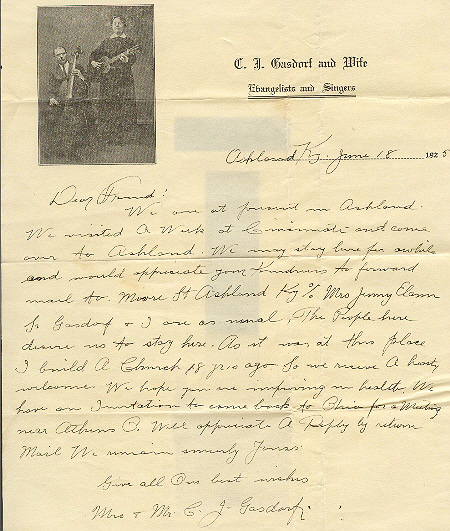 C. J. Gasdorf and Wife
Evangelists and Singers
Ashland Ky. June 18 1925
Dear Friend!
We are at present in Ashland.
We visited A Week at Cincinnati and come
over to Ashland. We may stay here for awhile
and would appreciate your Kindness to forward
mail to. Moore St Ashland Ky % Mrs Jenny Elam
Sr Gasdorf & I are as usual, The People here
desire us to stay here. As it was at this place
I build A Church 18 yrs ago So we receive A hearty
welcome. We hope you are improving in health. We
have an Invitation to come back to Ohio for a Meeting
near Athens O. Will appreciate A Reply by return
Mail We remain sincerly Yours
Give all Our best wishes
Mrs & Mr C. J. Gasdorf